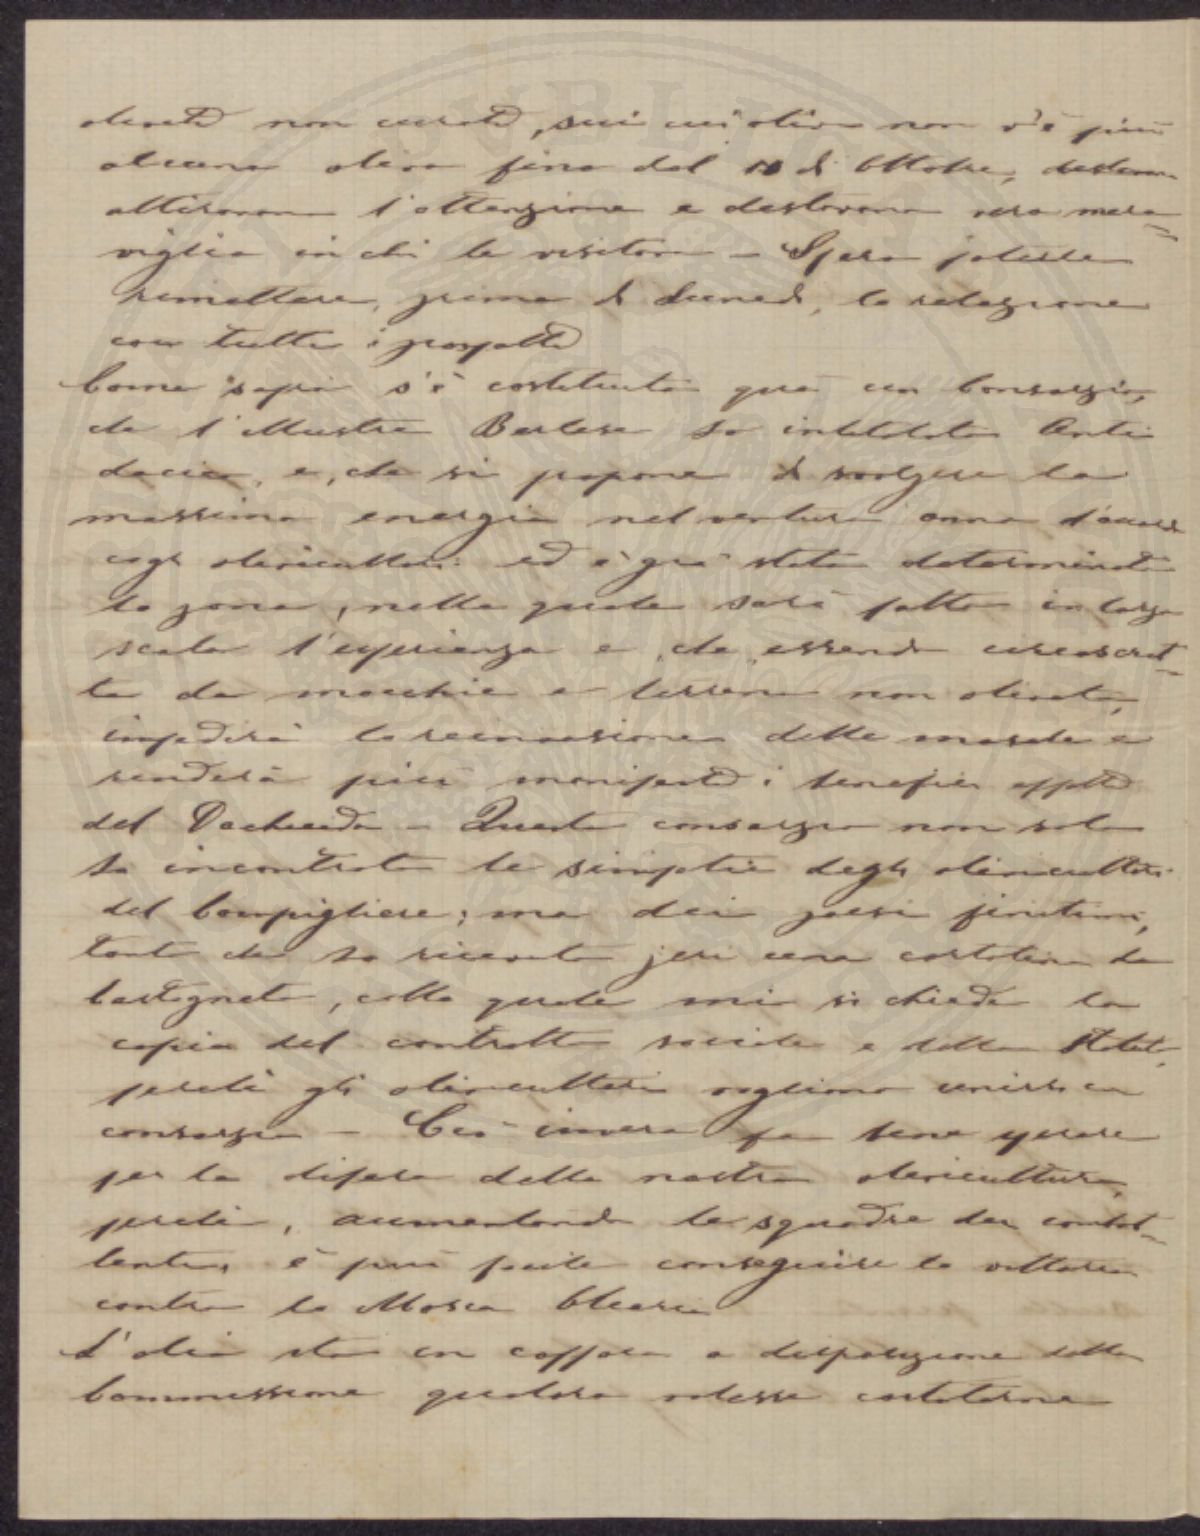 oliveti non curati, sui cui olivi non v'è più
alcuna oliva fino dal 10 di Ottobre,
attirarono l'attenzione e destarono vera mera=
viglia in chi le visitava – Spero poterle
rimettere, prima di Lunedì, la relazione
con tutti i prospetti
Come saprà s'è costituito quà un Consorzio,
che l'Illustre Berlese ha intitolato Anti
dacico, e, che si propone di svolgere la
massima energia nel venturo anno d'accordo
cogli olivicultori ed è già stata determinata
la zona, nella quale sarà fatta in larga
scala l'esperienza e, che, essendo circoscrit=
ta da macchie e terreni non olivati,
impedirà la reinvasione delle mosche e
renderà più manifesti i benefici effetti
del Dachicida – Questo consorzio non solo
ha incontrato le simpatie degli olivicultori
del Campigliese; ma dei paesi finitimi,
tanto che ho ricevuto jeri una cartolina da
Castagneto, colla quale mi si chiede la
copia del contratto sociale e dello Statuto,
perchè gli olivicultori vogliono unirsi in
consorzio – Ciò invero fa bene sperare
per la difesa della nostra olivicultura,
perchè, aumentando le squadre dei combat=
tenti, è più facile conseguire la vittoria
contro la Mosca Olearia
L'olio sta in coffa a disposizione della
Commissione qualora volesse